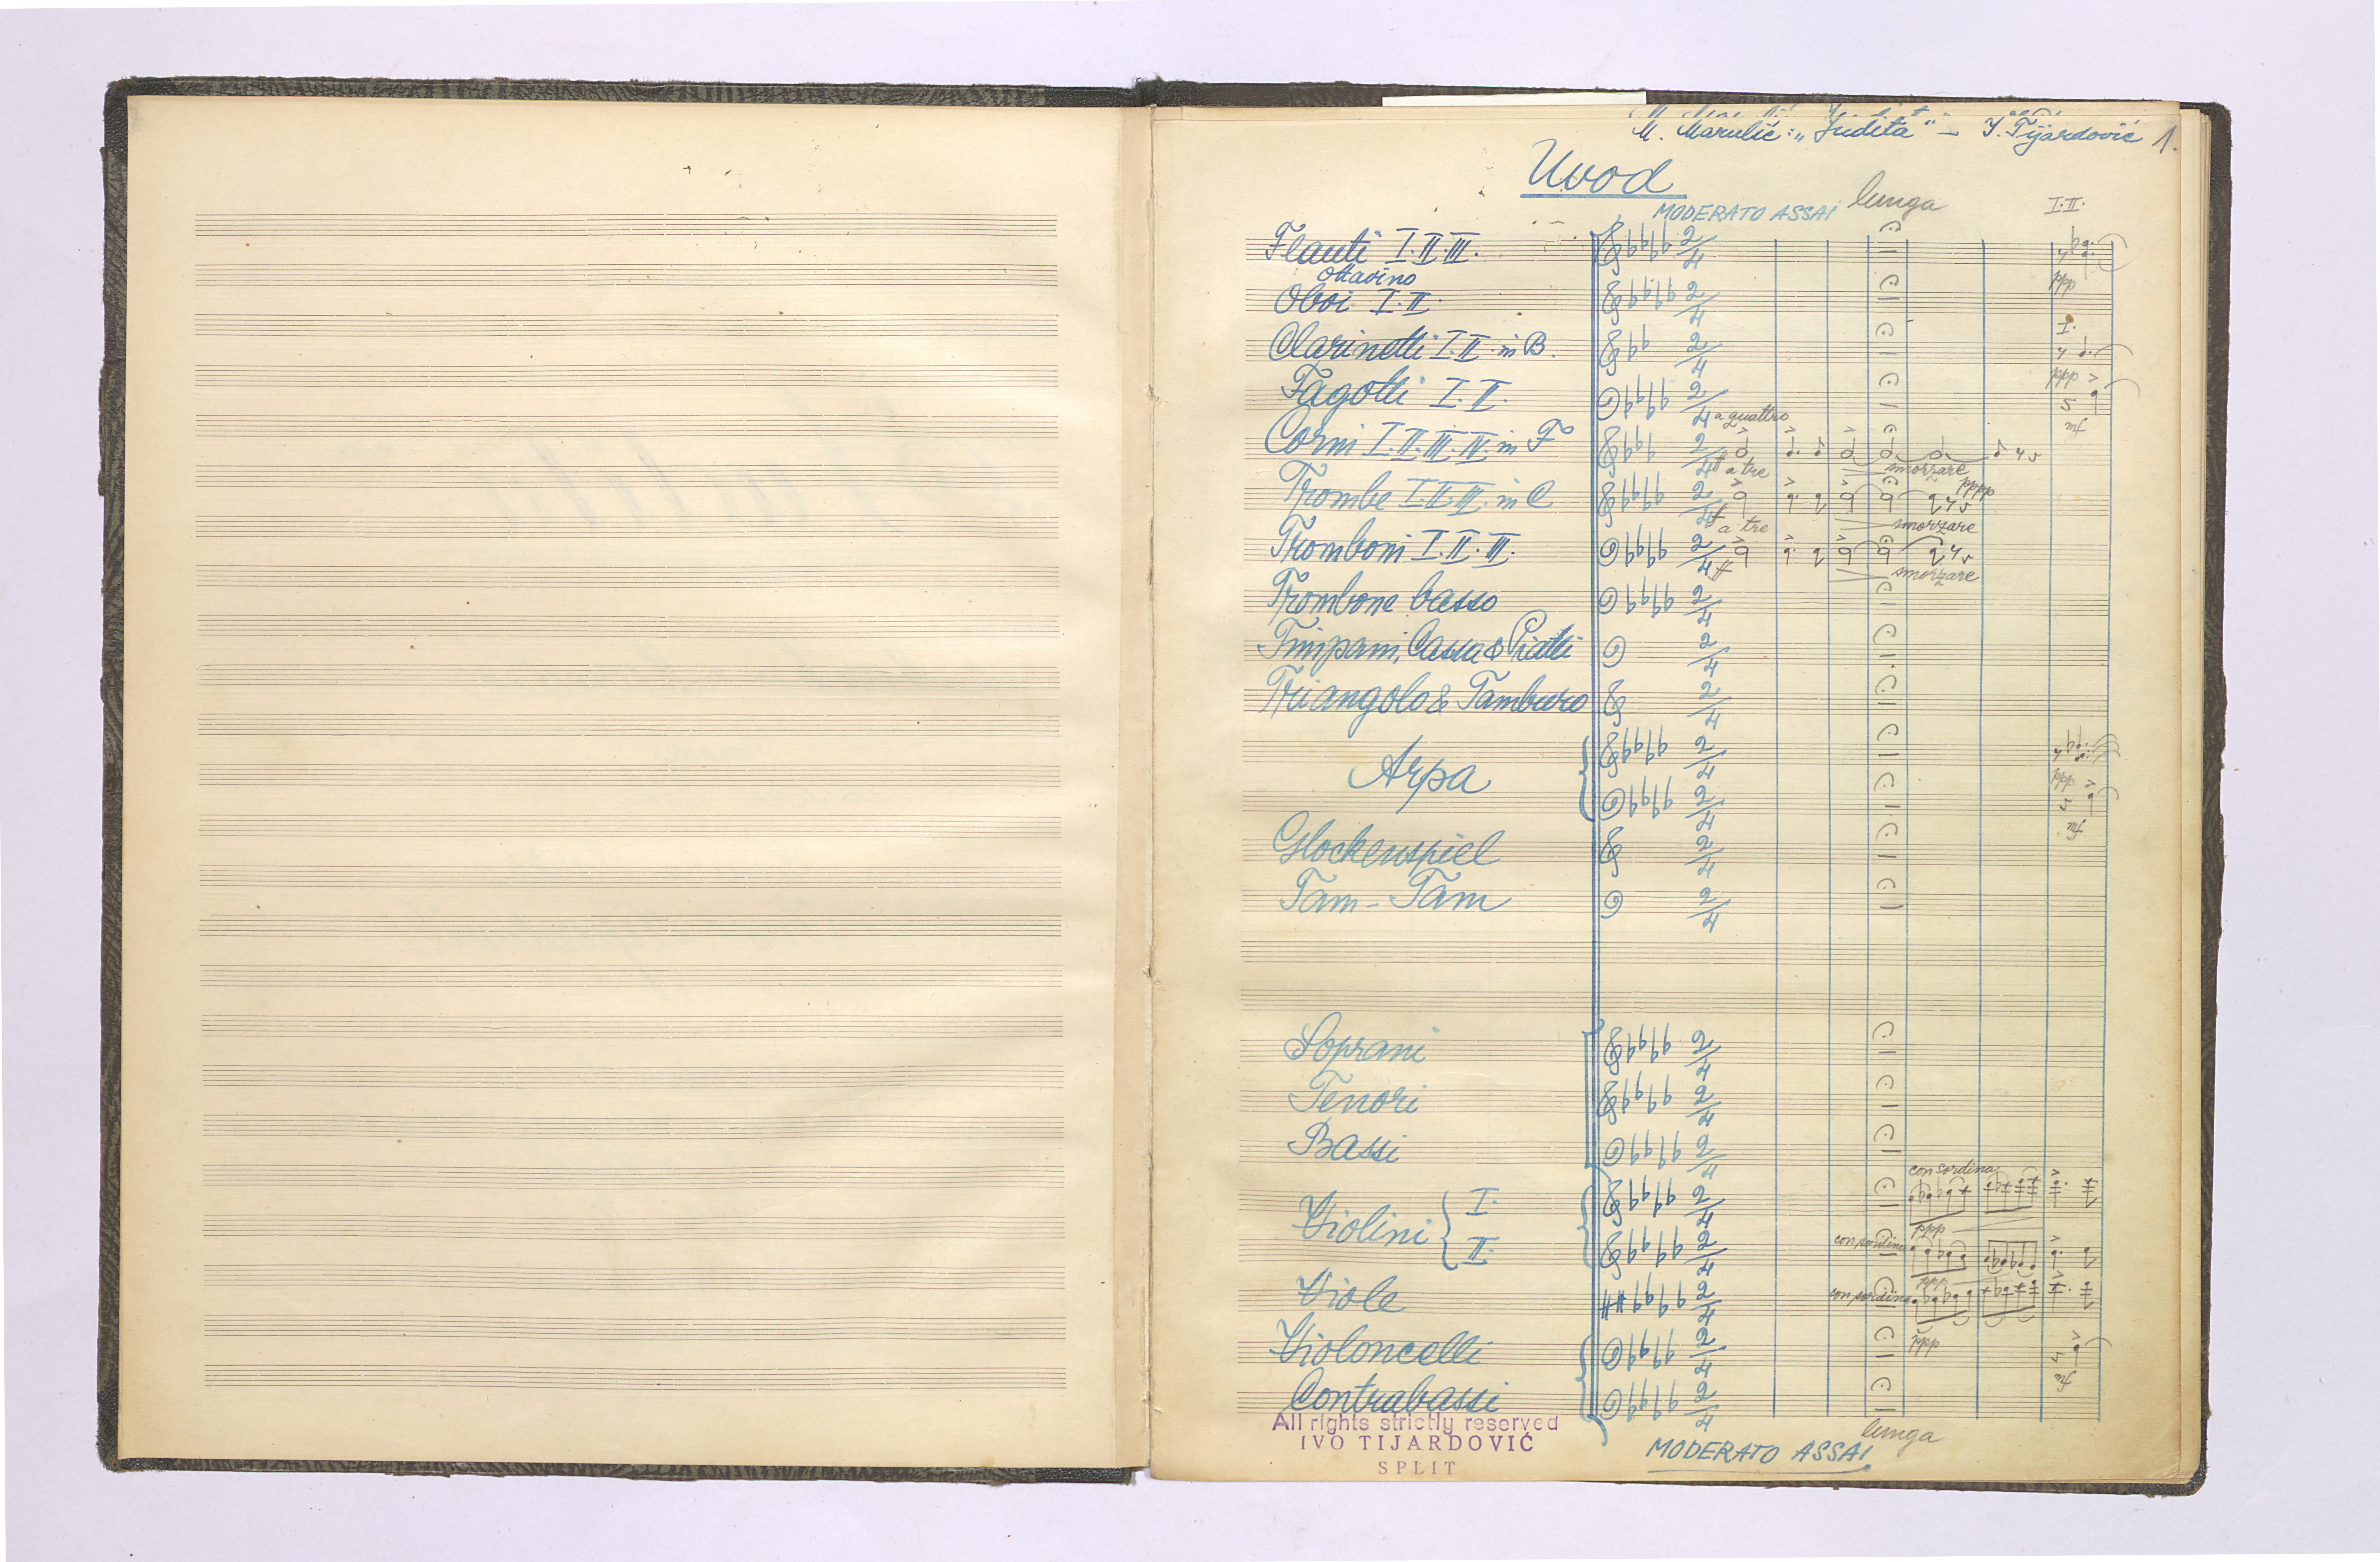 M. Marulić: „Judita" – I. Tijardović 1.
Uvod
MODERATO ASSAI lunga I. II.
Flauti I. II. III.
Ottavino
ppp
Oboi I. II.
I.
Clarinetti I. II. in B.
ppp
Fagotti I. II.
a quattro
Corni I. II. III. IV. in F
ff a tre smorzare
pppp
Trombe I. II. III. in C
ff a tre smorzare
Tromboni I. II. III.
ff smorzare
Trombone basso
Timpani, Cassa & Piatti
Triangolo & Tamburo
Arpa
ppp
Glockenspiel
Tam-Tam
Soprani
Tenori
Bassi
con sordina
Violini I.
ppp
con sordina
II.
ppp
Viole con sordina
ppp
Violoncelli
Contrabassi
lunga
All rights strictly reserved
IVO TIJARDOVIĆ
SPLIT
MODERATO ASSAI